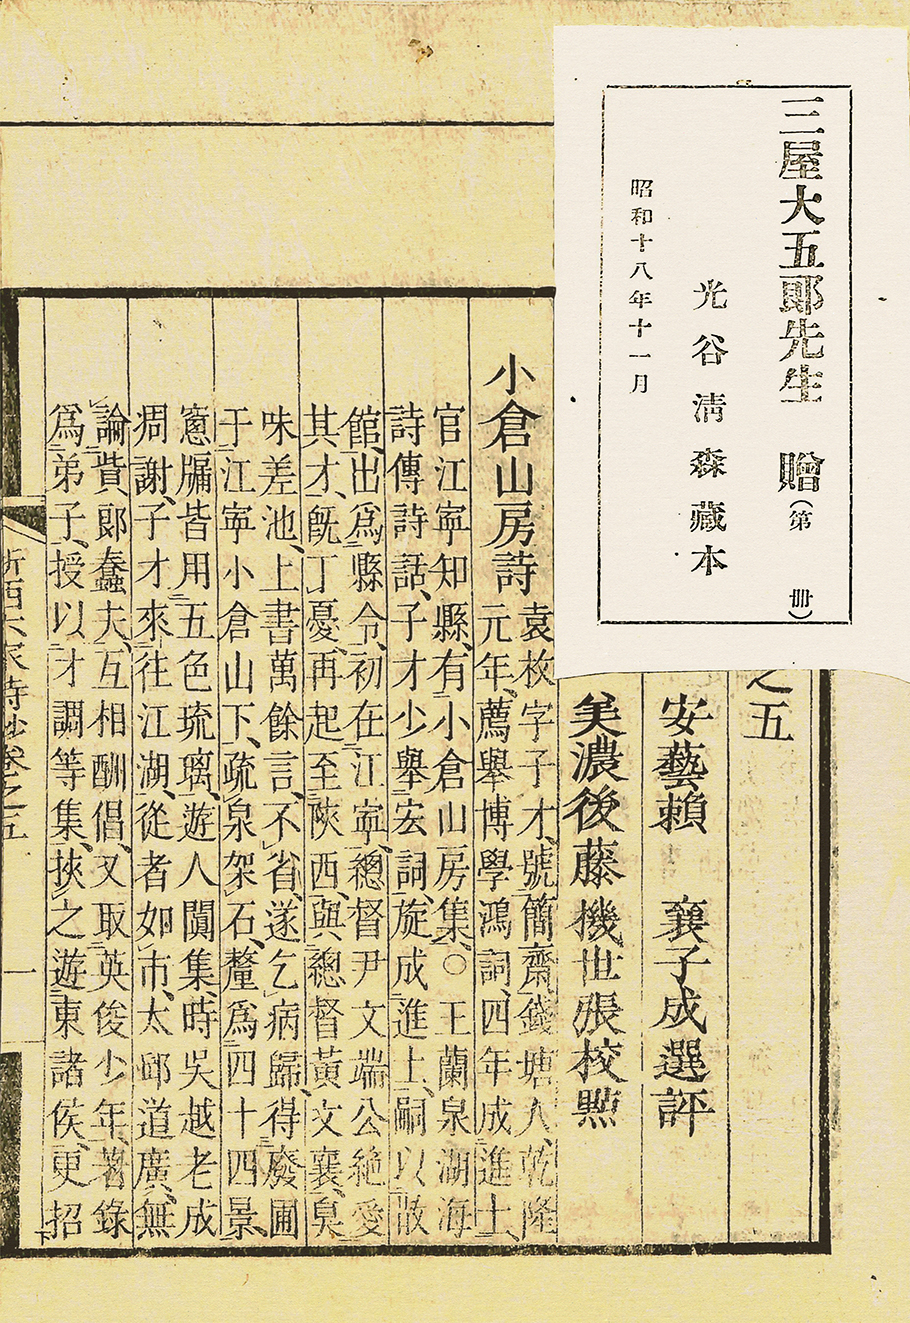 三屋大五郎先生 贈(第 冊)
光谷淸森藏本
昭和十八年十一月
之五
安藝賴 襄子成選評
美濃後藤機世張校㸃
小倉山房詩 袁枚字子才、號簡齋錢塘人、乾隆
元年、薦舉博學鴻詞、四年成進士、
官江寧知縣、有小倉山房集、○王蘭泉湖海
詩傳詩話、子才少舉宏詞、旋成進士、嗣以散
館、出爲縣令、初在江寧、總督尹文端公絕愛
其才、旣丁憂、再起至陝西、與總督黃文襄、臭
味差池、上書萬餘言、不省、遂乞病歸、得廢圃
于江寧小倉山下、疏泉架石、釐爲四十四景、
窻牖皆用五色琉璃、遊人闐集、時吳越老成
凋謝、子才來往江湖、從者如市、太邱道廣、無
論貲郞蠢夫、互相酬倡、又取英俊少年、著錄
爲弟子、授以才調等集、挾之遊東諸侯、更招
西六家詩鈔卷之五 一